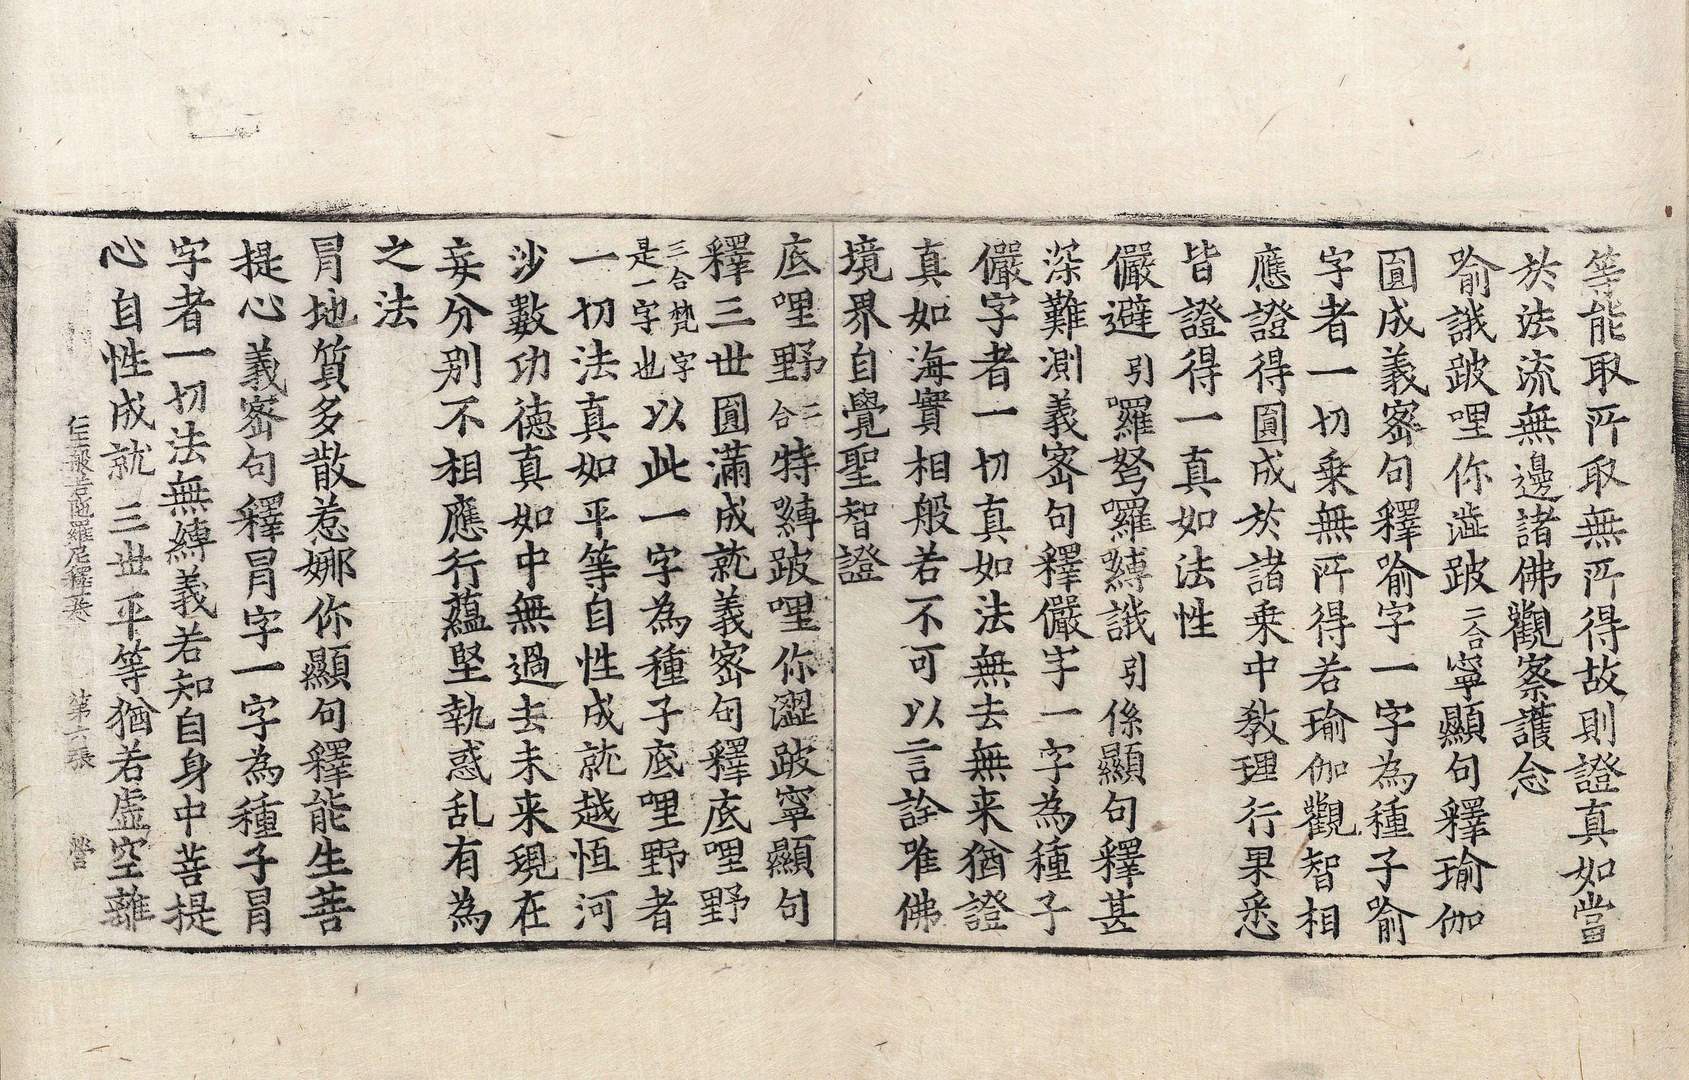 等能取所取無所得故則證真如當
於法流無邊諸佛觀察護念
喻誐跛哩你澁跛二合寧顯句釋瑜伽
圓成義密句釋喻字一字為種子喻
字者一切乗無所得若瑜伽觀智相
應證得圓成於諸乗中教理行果悉
皆證得一真如法性
儼避引囉弩囉縛誐引係顯句釋甚
深難測義密句釋儼字一字為種子
儼字者一切真如法無去無来猶證
真如海實相般若不可以言詮唯佛
境界自覺聖智證
底哩野二合特縛跛哩你澀跛寧顯句
釋三世圓滿成就義密句釋底哩野
三合梵字是一字也以此一字為種子底哩野者
一切法真如平等自性成就越恒河
沙數功德真如中無過去未来現在
妄分别不相應行蘊堅執惑乱有為
之法
冐地質多散惹娜你顯句釋能生菩
提心義密句釋冐字一字為種子冐
字者一切法無縛義若知自身中菩提
心自性成就三世平等猶若虛空離
仁王般若陁羅尼釋英 第六張 營